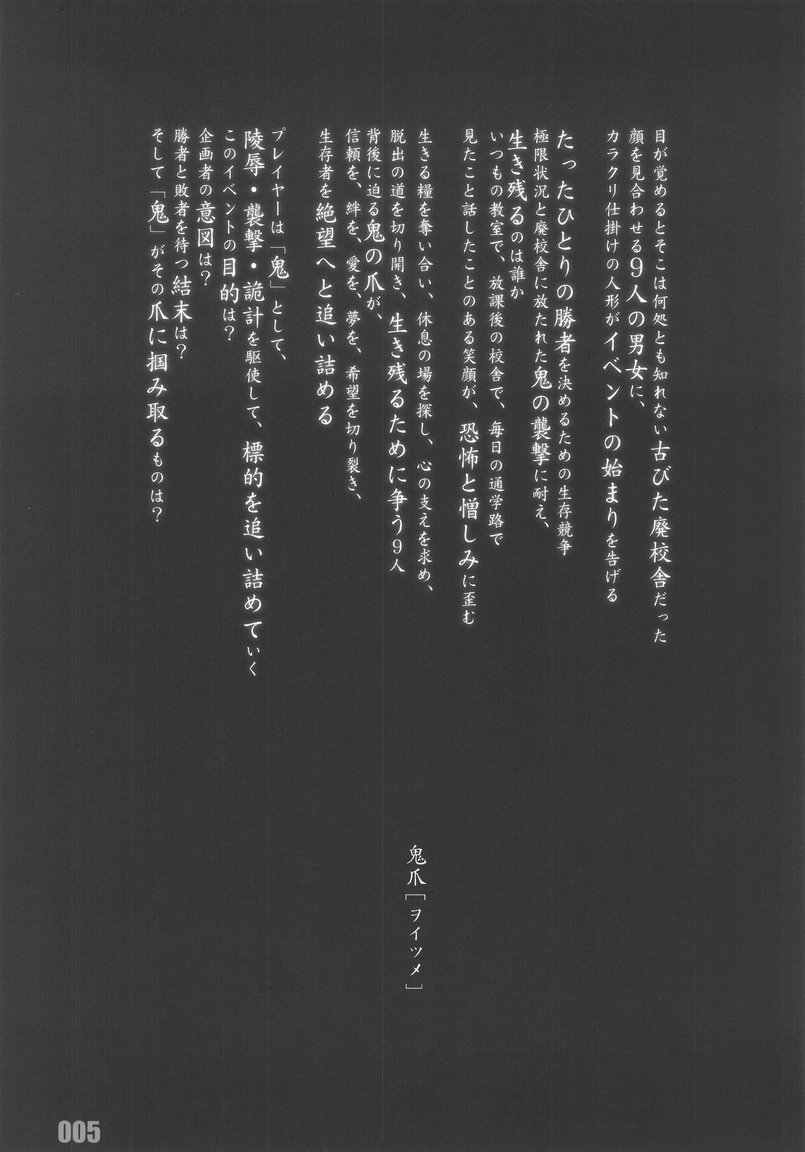 目が覚めるとそこは何処とも知れない古びた廃校舎だった
顔を見合わせる9人の男女に、
カラクリ仕掛けの人形がイベントの始まりを告げる
たったひとりの勝者を決めるための生存競争
極限状況と廃校舎に放たれた鬼の襲撃に耐え、
生き残るのは誰か
いつもの教室で、放課後の校舎で、毎日の通学路で
見たこと話したことのある笑顔が、恐怖と憎しみに歪む
生きる糧を奪い合い、休息の場を探し、心の支えを求め、
脱出の道を切り開き、生き残るために争う9人
背後に迫る鬼の爪が、
信頼を、絆を、愛を、夢を、希望を切り裂き、
生存者を絶望へと追い詰める
プレイヤーは「鬼」として、
陵辱・襲撃・詭計を駆使して、標的を追い詰めていく
このイベントの目的は?
企画者の意図は?
勝者と敗者を待つ結末は?
そして「鬼」がその爪に掴み取るものは?
鬼爪[ヲイツメ]
005